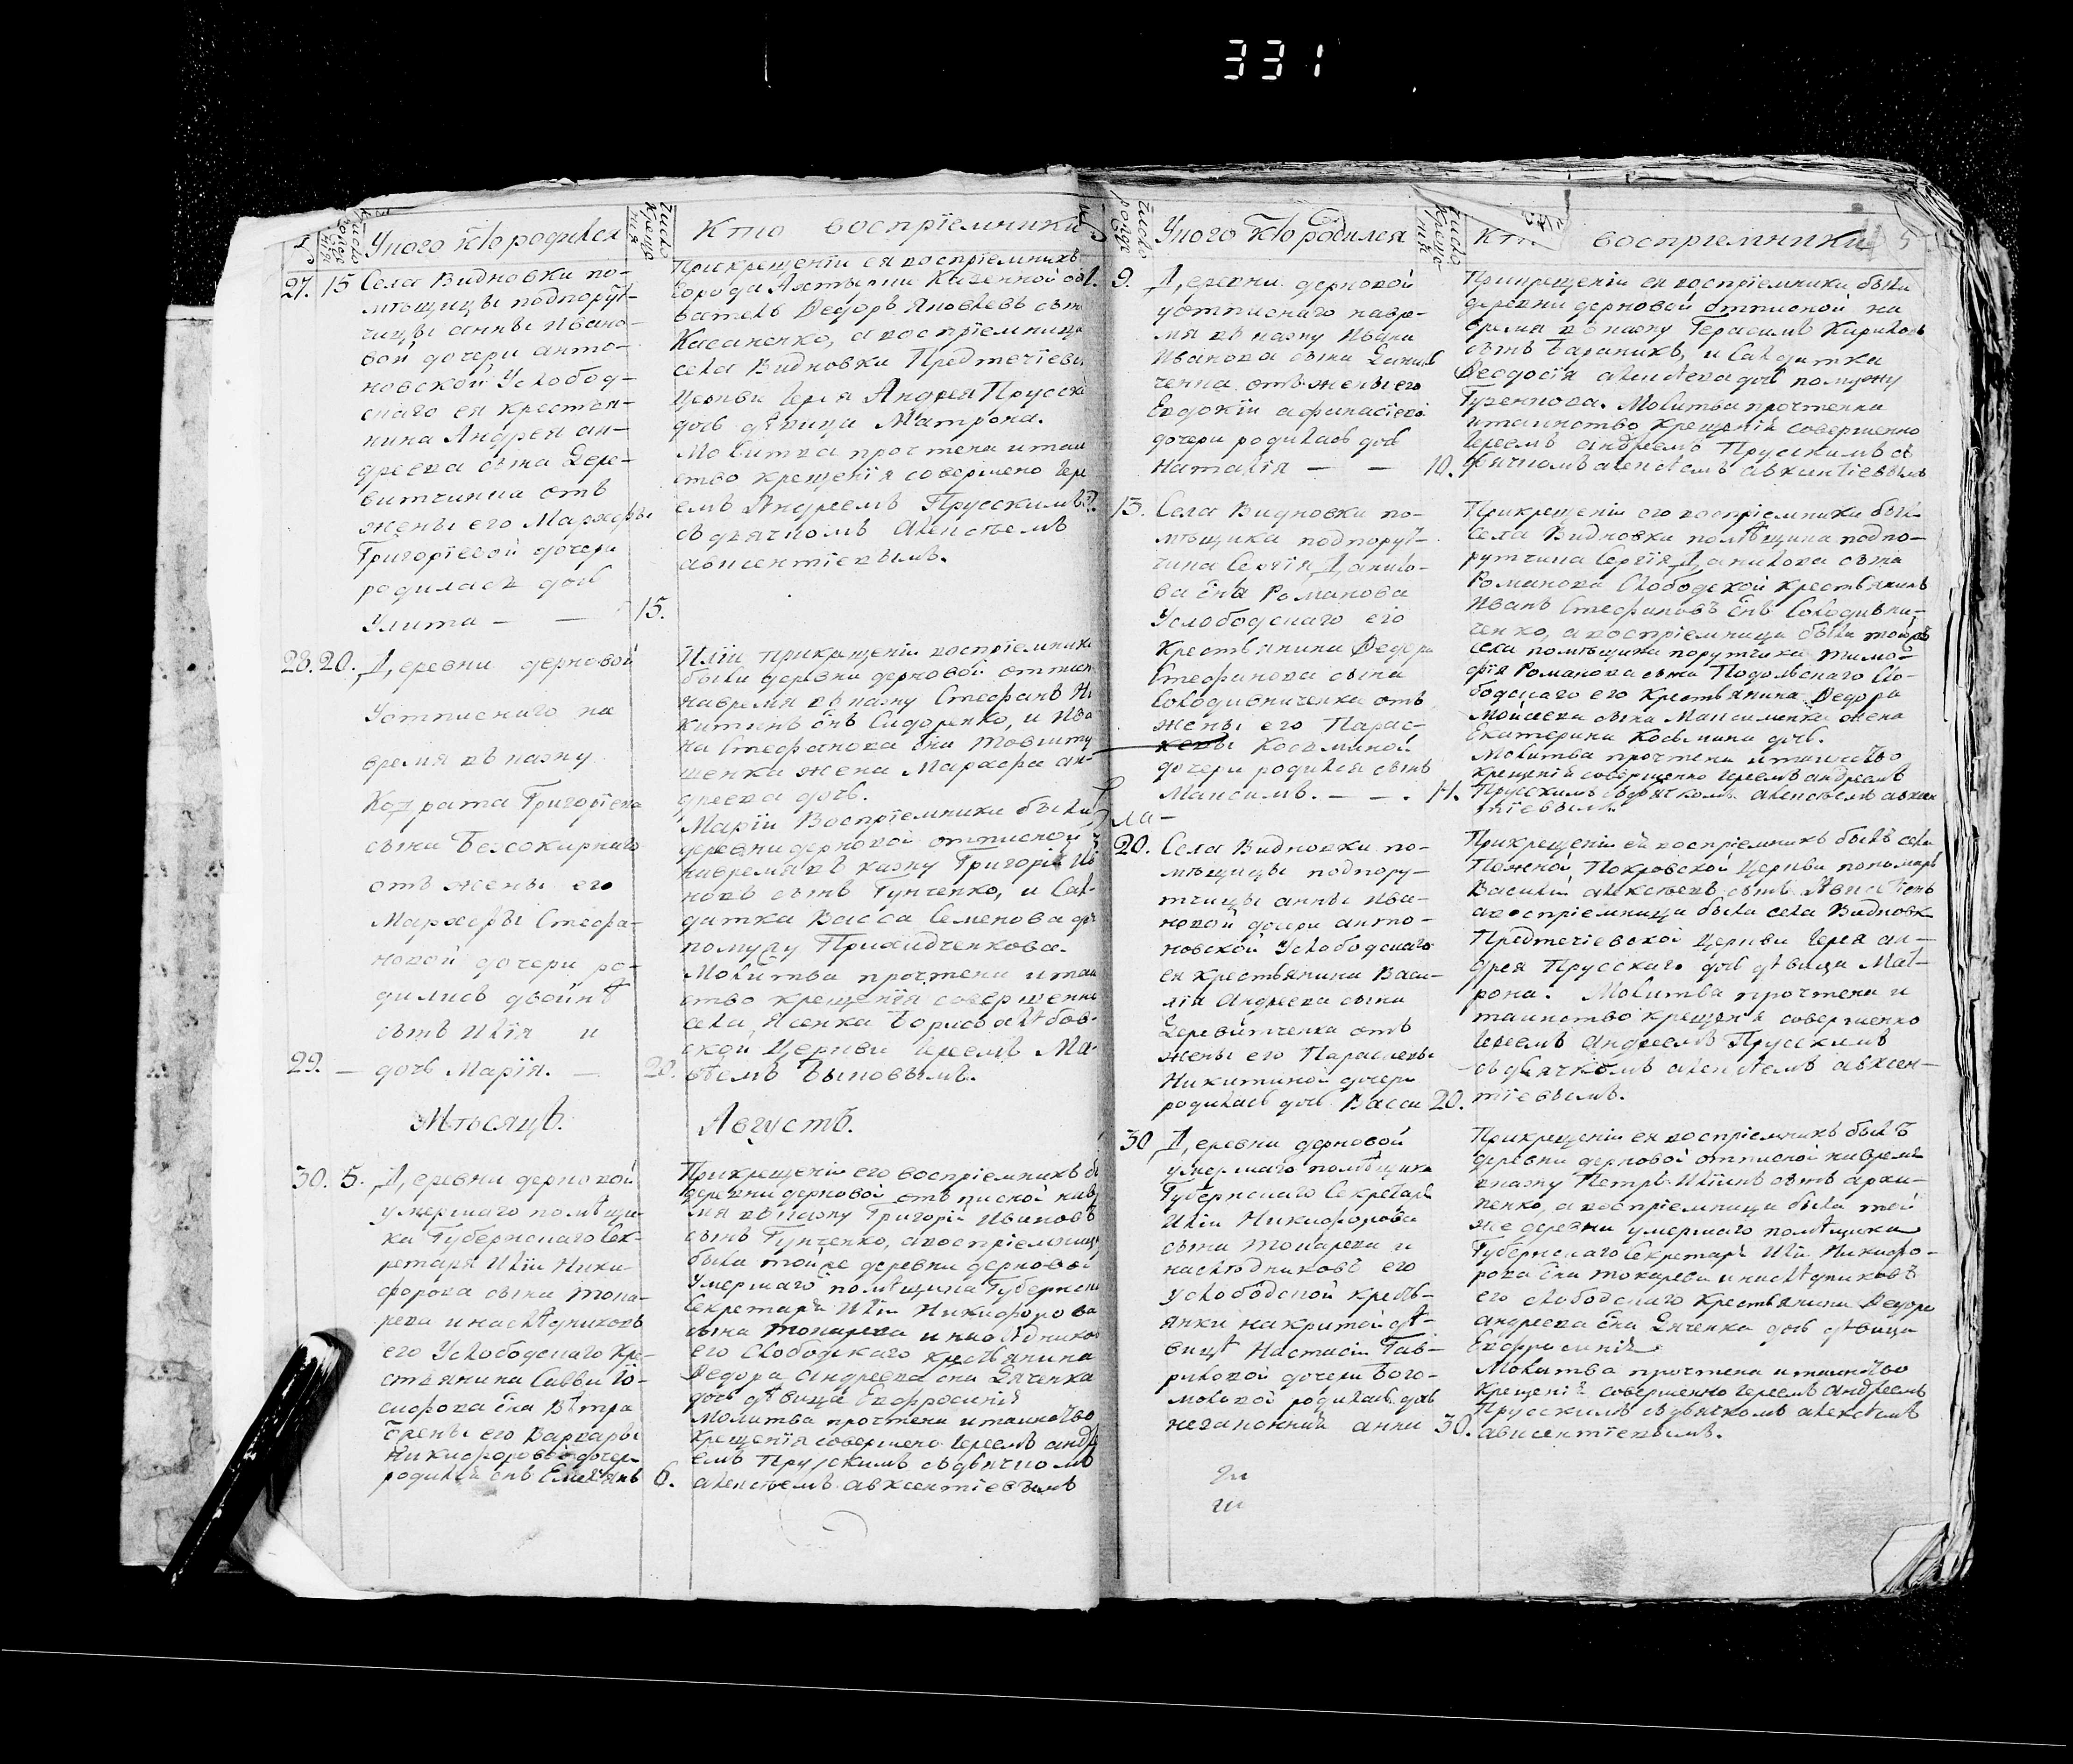 331
У кого кто родился
Кто воспрiемники
27. 15
Села Видновки по-
мѣщицы подпорут-
чицы анны Ивано-
вой дочери анто-
новской Услобод-
скаго ея крестья-
нина Андрея ан-
дреева сына Дере-
витчинка отъ
жены его Марѳы
Григорїевой дочери
родилась дочь
Улита — — 15.
Прикрещенїи ея воспрїемникъ
города Ахтырки Казенной об
ватель Ѳедоръ Яковлевъ сынъ
Касаненко, а воспрїемница
села Видновки Предтечїевы
Церкви Iерея Андрея Прусск
дочь дѣвица Матрона.
Молитва прочтена и таи
ство крещенїя совершено Iере
емъ Андреемъ Прусскимъ
съ дьячкомъ Алексѣемъ
авксентїевымъ.
28. 20. Деревни дерновой
Уотписнаго на
время въ казну
Кодрата Григорїева
сына Безсокирнаго
отъ жены его
Марѳы Стефа-
новой дочери ро-
дились двойнѣ
сынъ Илїя и
29. — дочь Марїя. — 20.
Илїи прикрещенїи воспрїемники
были деревни дерновой отписн
навремя въ казну Стефанъ Ни
китинъ снъ Сидоренко, и Ива
на Стефанова сна Товшту
шенка жена Марѳа ан-
дреева дочь.
Марїи Воспрїемники были
деревни дерновой отписной
навремя въ казну Григорїй Ив
новъ сынъ Гунченко, и Сал-
датка Васса Семенова до
по мужу Прихидченкова.
Молитва прочтена и таи
ство крещенїя совершенно
села Ясенка Борисоглѣбов-
ской Церкви Iереемъ Ма-
вѣемъ Быковымъ.
Мѣсяцъ.
Августъ.
30. 5. Деревни дерновой
умершаго помѣщи-
ка Губернскаго Сек-
ретаря Илїи Ники-
форова сына Тока-
рева и наслѣдниковъ
его Услободскаго Кре-
стьянина Саввы Io-
сифова сна Вѣтра
жены его Варвары
Никифоровой дочери
родился снъ Емелїянъ 6.
Прикрещенїи его воспрїемникъ б
деревни дерновой отъписной нав
мя въ казну Григорїй Ивановъ
сынъ Гунченко, а воспрїемниц
была той же деревни дерновой
умершаго помѣщика Губернск
Секретаря Илїи Никифорова
сына Токарева и наслѣднико
его слободскаго крестьянина
Ѳедора андреева сна Дяченка
дочь дѣвица Евфросинїя
Молитва прочтена и таинство
крещенїя совершено Iереемъ андр
емъ Прусскимъ съ дьячкомъ
алексѣемъ авксентїевымъ
У кого кто родился
воспрiемники
9. Деревни дерновой
у отписнаго навре-
мя въ казну Ивана
Иванова сына
ченка отъ жены его
Евдокїи афанасїевой
дочери родилась дочь
Наталїя — — 10.
Прикрещенїи ея воспрїемники были
деревни дерновой отписной на
время въ казну Герасимъ Кариловъ
сынъ Бараникъ, и Салдатка
Ѳеодосїя алексѣева дочь по мужу
Гузенкова. Молитва прочтенна
и таинство крещенїя совершенно
Iереемъ андреемъ Прусскимъ съ
дьячкомъ алексѣемъ авксентїевымъ
13. Села Видновки по-
мѣщика подпорут-
чика Сергїя Данило-
ва сна Романова
Услободскаго его
Крестьянина Ѳедора
Стефанова сына
Солодивниченка отъ
жены его Парас-
кевы Косьминой
дочери родился сынъ
Максимъ. — — . 14.
Прикрещенїи его воспрїемники были
села Видновки помѣщика подпо-
рутчика Сергїя Данилова сына
Романова Слободской Крестьянинъ
Иванъ Стефановъ снъ Солодивни-
ченко, а воспрїемница была той же
села помѣщика порутчика Тимо-
фїя Романова сына Подольскаго Сло-
бодскаго его Крестьянина Ѳедора
Мойсеева сына Максименка жена
Екатерина Косьмина дочь.
Молитва прочтена и таинство
крещенїя совершенно Iереемъ андреемъ
Прусскимъ съ дьячкомъ алексѣемъ авксен
тїевымъ.
20. Села Видновки по-
мѣщицы подпору-
тчицы анны Ива-
новой дочери анто-
новской Услободскаго
ея крестьянина Васи-
лїя Андреева сына
Деревитченка отъ
жены его Параскевы
Никитиной дочери
родилась дочь Васса 20.
Прикрещенїи ей воспрїемникъ былъ села
Покровской Церкви пономарь
Василїй алексѣевъ сынъ
а воспрїемница была села Видновк
Предтечїевской Церкви Iерея ан-
дрея Прусскаго дочь дѣвица Мат-
рона. Молитва прочтена и
таинство крещенїя совершенно
Iереемъ Андреемъ Прусскимъ
съ дьячкомъ алексѣемъ авксен-
тїевымъ.
30 Деревни дерновой
умершаго помѣщика
Губернскаго Секретаря
Илїи Никифорова
сына Токарева и
наслѣдниковъ его
Услободской кресть-
янки накритой дѣ-
вицѣ Настасїи Гав-
риловой дочери Бого-
моловой родилась дочь
незаконная анна 30.
Прикрещенїи ея воспрїемникъ былъ
деревни дерновой отписной навремя
вказну Петръ Илїинъ сынъ архи-
пенко, а воспрїемница была той
же деревни умершаго помѣщика
Губернскаго Секретаря Илїи Никифо-
рова сна Токарева и наслѣдниковъ
его слободскаго Крестьянина Ѳедора
андреева сна Дяченка дочь дѣвица
Евфросинїя
Молитва прочтена и таинство
крещенїя совершенно Iереемъ Андреемъ
Прусскимъ съ дьячкомъ алексѣемъ
авксентїевымъ.